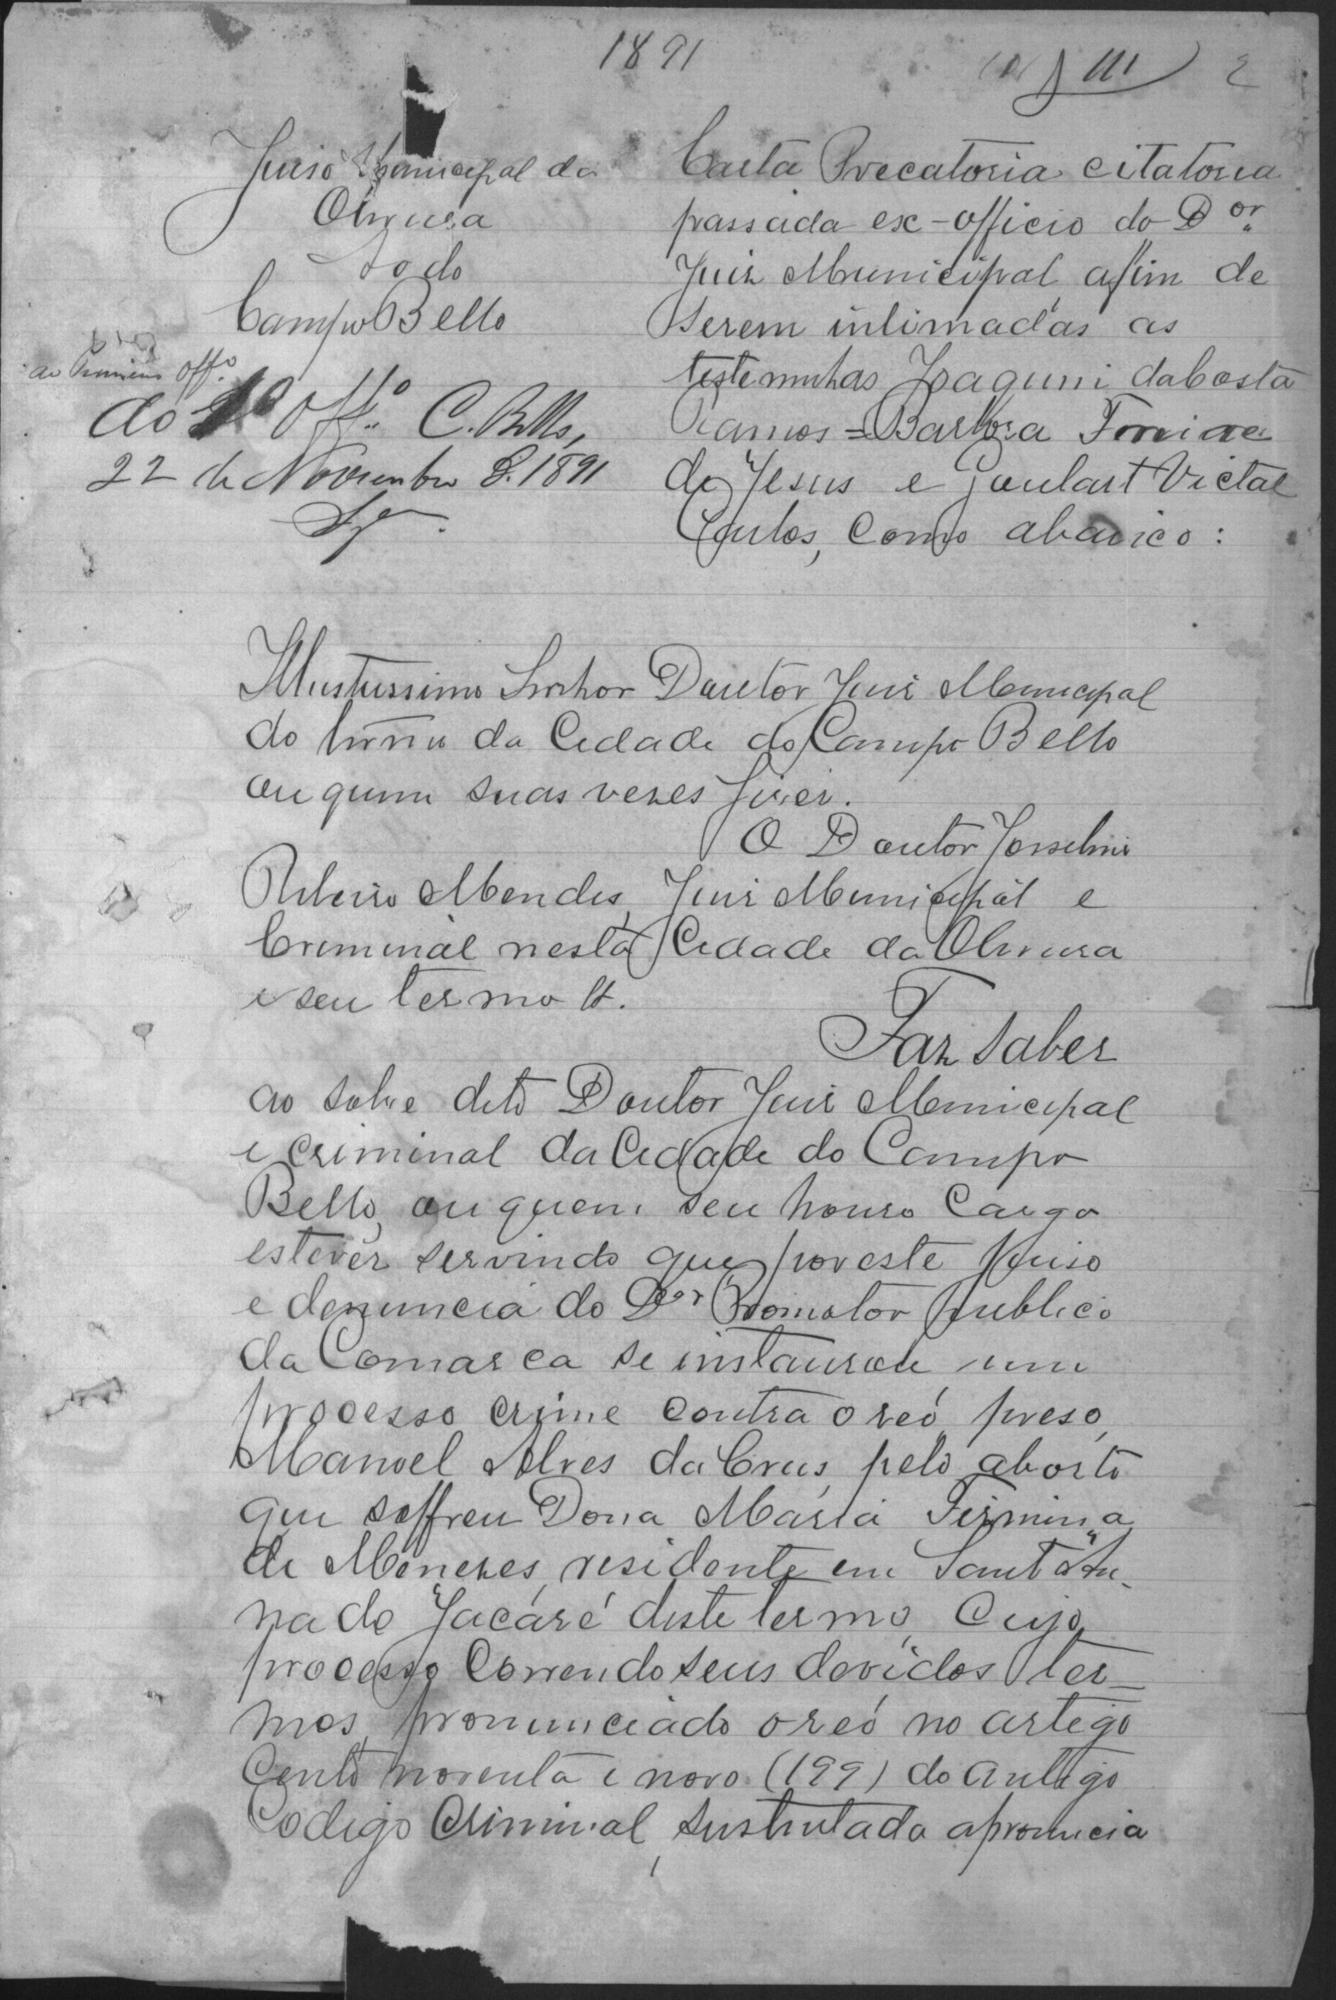 1891
2
Juiso Municipal da
Oliveira
do
Campo Bello
ao Primeiro Offº
do 1º Offº C. Bello,
22 de Novembro d. 1891
Carta Precatoria citatoria
passada ex-officio do Dor
Juiz Municipal, afim de
serem intimadas as
testemunhas Joaquim da Costa
Ramos = Barbosa
de Jesus e Goulart Victal
como abaixo:
Illustrissimo Senhor Doutor Juiz Municipal
do termo da Cidade do Campo Bello
ou quem suas vezes fizer.
O Doutor Josselino
Ribeiro Mendes, Juiz Municipal e
Criminal nesta Cidade da Oliveira
e seu termo &.
Faz saber
ao sobre dito Doutor Juiz Municipal
e criminal da Cidade do Campo
Bello, ou quem seu honro Cargo
estever servindo que por este Juiso
e denuncia do Dor Promotor publico
da Comarca se instaurou um
processo crime contra o reó preso,
Manoel Alves da Crus, pelo aborto
que soffreu Dona Maria Firmina
de Menezes, residente em Sant'An-
na do Jacaré deste termo, Cujo
processo Correndo seus devidos ter-
mos, pronunciado o reó no artigo
Cento noventa e nove (199) do antigo
Codigo Criminal, sustentada a pronuncia